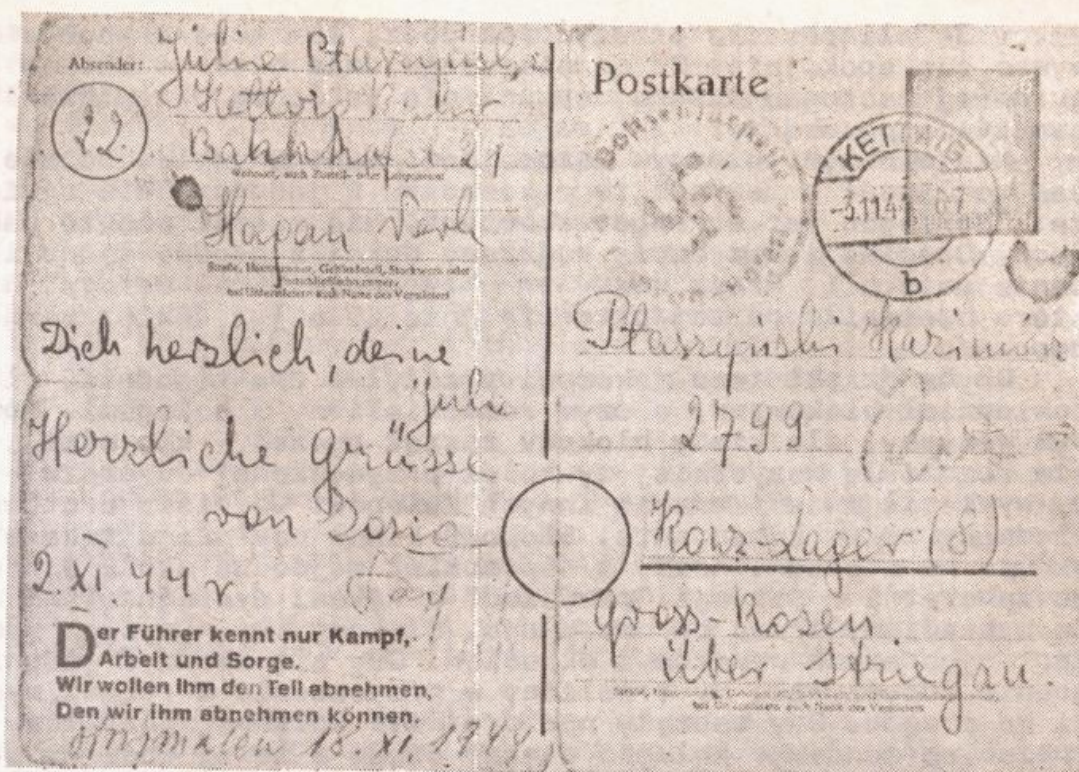 Absender: Julie Ptaszyńska
Kettwig Ruhr
22.
Bahnhofst 21
Wohnort, auch Zustell- oder Leitpostamt
Hagan
Straße, Hausnummer, Gebäudeteil, Stockwerk oder Postschließfachnummer;
bei Untermietern auch Name des Vermieters
Dich herzlich, deine
Julie
Herzliche Grüsse
von Zosia
2.XI.44 r
Der Führer kennt nur Kampf,
Arbeit und Sorge.
Wir wollen ihm den Teil abnehmen,
Den wir ihm abnehmen können.
18.XI.1944
Postkarte
KETTWIG
-3.11.4
b
Ptaszyński Kazimierz
2799
Konz-Lager (8)
Gross-Rosen
über Striegau.
Straße, Hausnummer, Gebäudeteil, Stockwerk oder Postschließfachnummer;
bei Untermietern auch Name des Vermieters